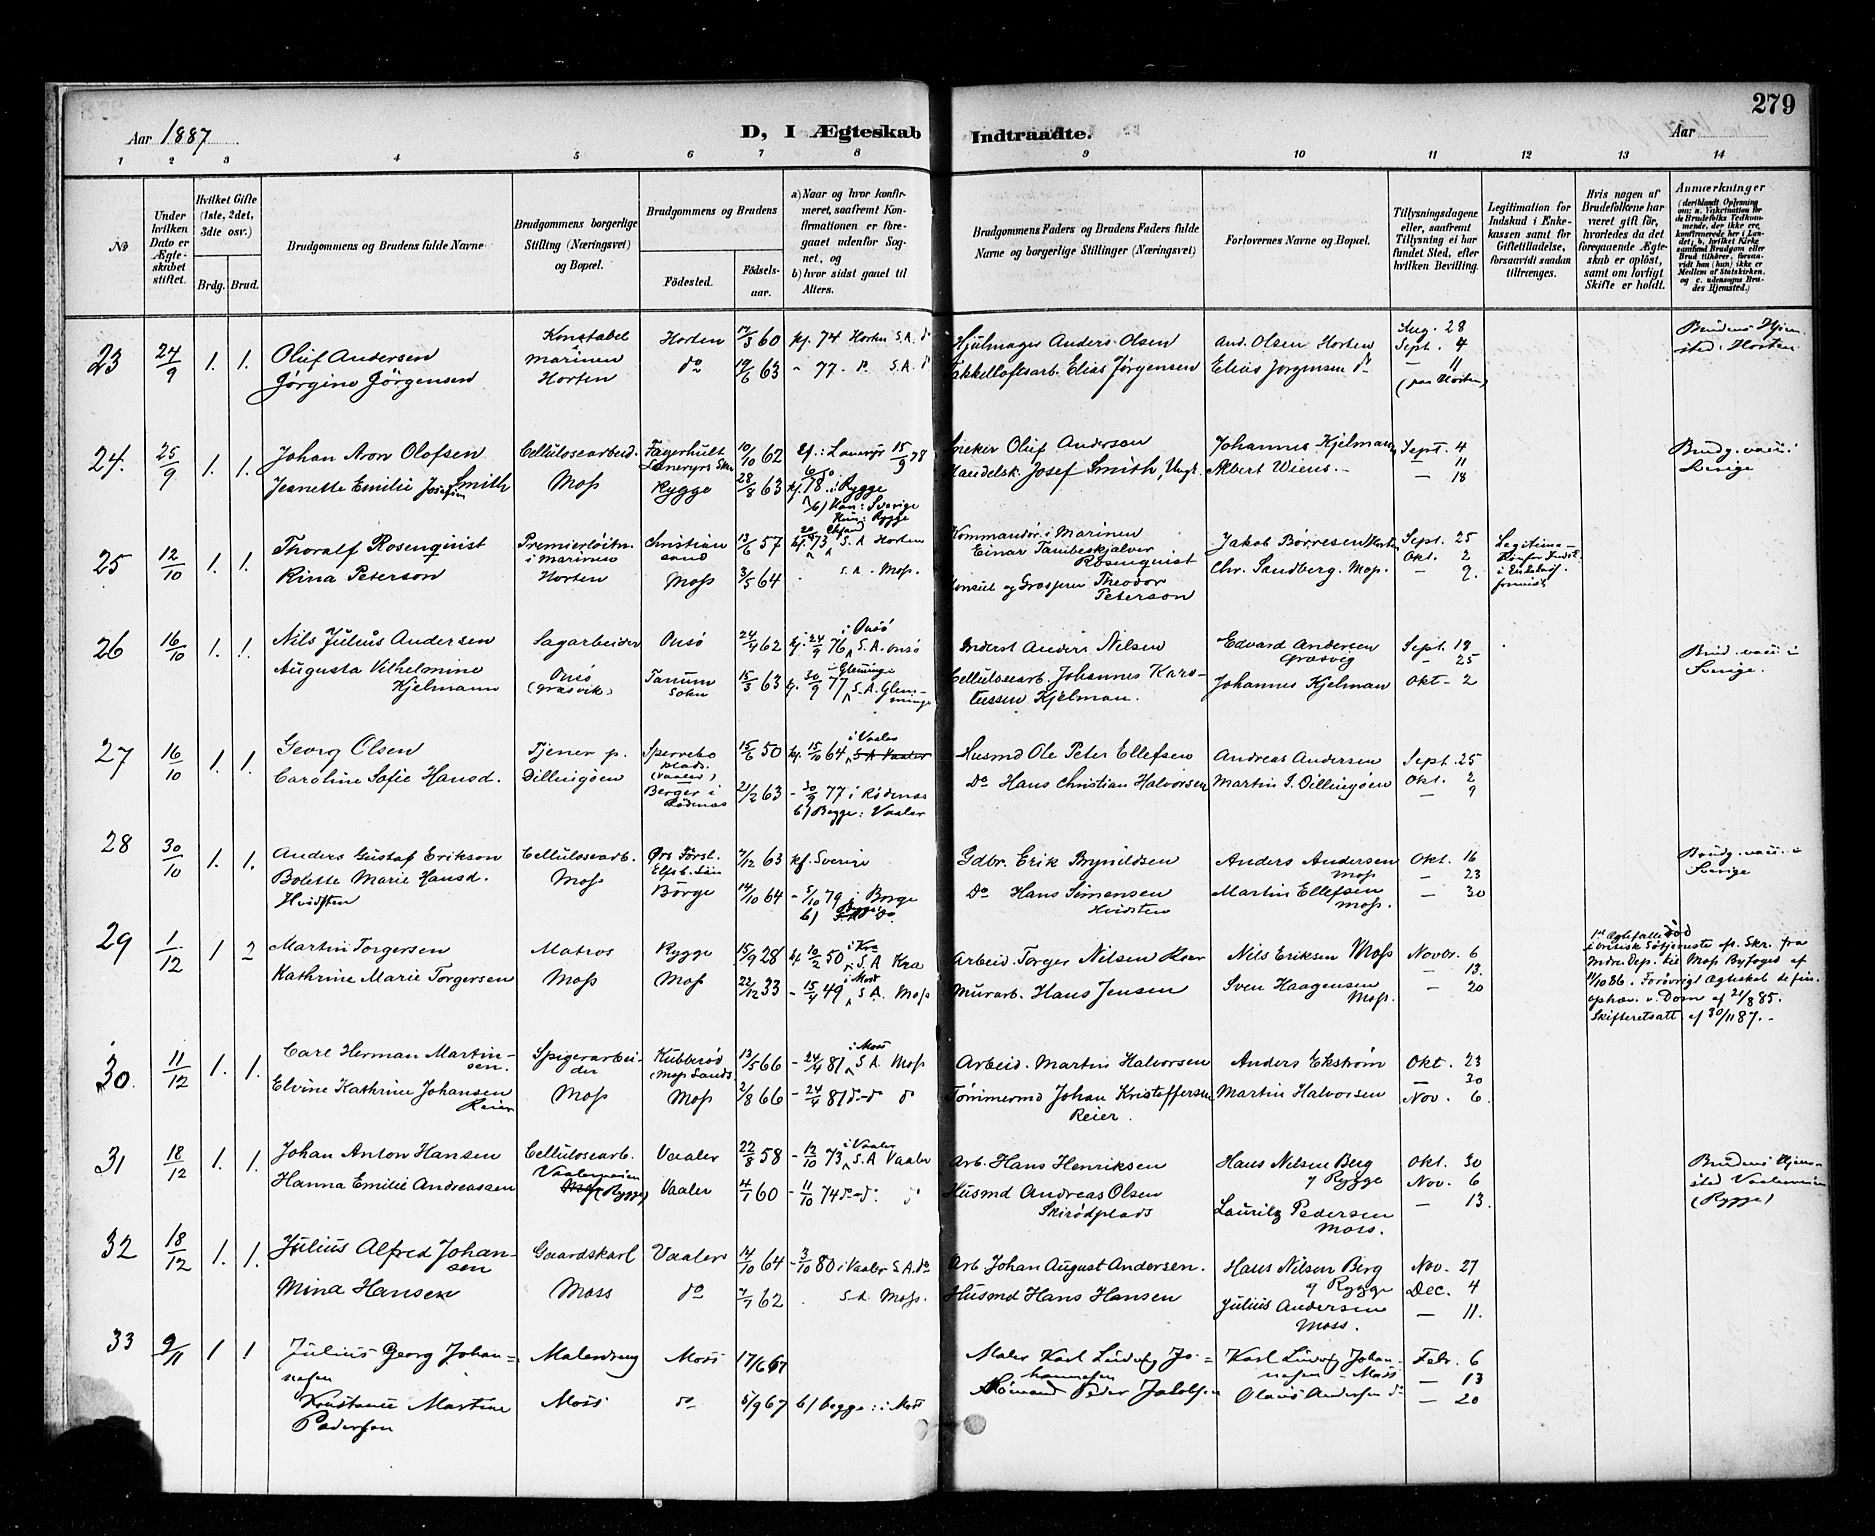 279
Aar 1887
D, I Ægteskab Indtraadte.
Aar
1 2 3 4 5 6 7 8 9 10 11 12 13 14
No
Under hvilken Dato er Ægteskabet stiftet.
Hvilket Gifte (1ste, 2det, 3die osv.)
Brdg. Brud.
Brudgommens og Brudens fulde Navne
Brudgommens borgerlige Stilling (Næringsvei) og Bopæl.
Brudgommens og Brudens
Födested.
Födselsaar.
a) Naar og hvor konfirmeret, saafremt Konfirmationen er foregaaet udenfor Sognet, og
b) hvor sidst gaaet til Alters.
Brudgommens Faders og Brudens Faders fulde Navne og borgerlige Stillinger (Næringsvei)
Forlovernes Navne og Bopæl.
Tillysningsdagene eller, saafremt Tillysning ei har fundet Sted, efter hvilken Bevilling.
Legitimation for Indskud i Enkekassen samt for Giftetilladelse, forsaavidt saadan tiltrænges.
Hvis nogen af Brudefolkene har været gift för, hvorledes da det foregaaende Ægteskab er oplöst, samt om lovligt Skifte er holdt.
Anmærkninger (deriblandt Oplysning om: a. Vakcination for de Brudefolks Vedkommende, der ikke ere konfirmerede her i Landet; b. hvilket Kirkesamfund Brudgom eller Brud tilhörer, forsaavidt han (hun) ikke er Medlem af Statskirken, og c. udensogns Brudes Hjemsted.)
23 24/9 1. 1. Oluf Andersen
Jörgine Jörgensen
Konstabel i marinen Horten
Horten 60 kf. 74 Horten S.A. do
do 63 - 77 - do S.A. do
Hjulmager Anders Olsen
Takkelloftsarb. Elias Jørgensen
And. Olsen Horten
Elias Jorgensen do
Aug. 28
Sept. 4
— 11
(paa Horten)
Brudens Hjemsted: Horten
24. 25/9 1. 1. Johan Aron Olofsen
Jeanette Emilie Josefine Smith
Cellulosearbeid. Moss
Fagerhult
Rygge
10/10 62
28/8 63
15/9 78
kf. 78 i Rygge
b) Han: Sverige
Hun: Rygge
Oluf Anderson
Handelsk. Josef Smith, Ungk.
Johannes Kjelmann
Albert Wiens. —
Sept. 4
— 11
— 18
Brudg. vacc. i Sverige
25 12/10 1. 1. Thoralf Rosenqvist
Rina Peterson
Premierlöitn. i marinen Horten
Christiansand
Moss
13/6 57
3/5 64
73 S.A. Horten
S.A. Moss.
Kommandör i Marinen Einar Tambeskjelver Rosenqvist
Konsul og Grosserer Theodor Peterson
Jakob Børresen Horten
Chr. Sandberg. Moss.
Sept. 25
Okt. 2
— 9.
26 16/10 1. 1. Nils Julius Andersen
Augusta Vilhelmine Kjelmann
Sagarbeider
Onsö (Græsvik)
Onsö
Tanum Sokn
24/4 62
15/3 63
kf. 24/9 76 i Onsö S.A. Onsö
kf. 30/9 77 i Glemminge S.A. Glemminge
Inderst Anders Nilsen
Cellulosearb. Johannes Karstensen Kjelman.
Edvard Andersen Græsvig
Johannes Kjelman
Sept. 18
- 25
Okt - 2
Brud. vacc. i Sverige.
27 16/10 1. 1. Georg Olsen
Caroline Sofie Hansd.
Tjener p. Dillingöen
Sperrebo plads. (Vaaler)
Berger i Rödenæs
15/6 50
21/2 63
kf. 15/10 64 i Vaaler S.A. Vaaler
- 30/9 77 i Rødenæs
b) Begge: Vaaler
Husmd Ole Peter Ellefsen
Do Hans Christian Halvorsen
Andreas Andersen
Martin J. Dillingöen
Sept. 25
Okt. 2
— 9
28 30/10 1. 1. Anders Gustaf Erikson
Bolette Marie Hansd. Hvidsten
Cellulosearb. Moss
Elfsb. Län
Borge
7/12 63
14/10 64
kf. Sverige
- 5/10 79 i Borge
Gdbr. Erik Brynildsen
Do Hans Simensen Hvidsten
Anders Andersen Moss
Martin Ellefsen Moss.
Okt. 16
— 23
— 30
Brudg. vacc. i Sverige
29 1/12 1 2 Martin Torgersen
Kathrine Marie Torgersen
Matros Moss
Rygge
Moss
15/9 28
22/12 33
kf 10/2 50 i Kra S.A. Kra
- 15/4 49 i Moss S.A. Moss
Arbeid. Torger Nilsen Roer
Murarb. Hans Jensen
Nils Eriksen Moss
Sven Haagensen Moss.
Novbr. 6
— 13.
— 20
1ste Ægtefælle död i britisk Sötjeneste ef. Skr. fra Indre Dep. til Moss Byfoged af 11/10 86. Forövrigt Ægteskab. defin. ophæv. v. Dom af 21/8 85. Skifteretsatt. af 30/11 87. -
30. 11/12 1. 1. Carl Herman Martinsen.
Elvine Kathrine Johansen Reier
Spigerarbeider Moss
Kubberød (Moss Lands.)
Moss
13/5 66
2/8 66
- 24/4 81 i Moss S.A. Moss
- 24/4 81 do - do do
Arbeid. Martin Halvorsen
Tömmermd Johan Kristoffersen Reier.
Anders Ekström
Martin Halvorsen
Okt. 23
— 30
Nov. 6
31 18/12 1. 1. Johan Anton Hansen
Hanna Emilie Andreassen
Cellulosearb. Vaalerveien Moss (Rygge)
Vaaler
Vaaler
22/8 58
4/1 60
- 12/10 73 i Vaaler S.A. Vaaler
- 11/10 74 do - do. do
Arb. Hans Henriksen
Husmd Andreas Olsen Skirödplads
Hans Nilsen Berg i Rygge
Lauritz Pedersen Moss.
Okt. 30
Nov. 6
— 13.
Brudens Hjemsted Vaalerveien (Rygge)
32 18/12 1. 1. Julius Alfred Johansen
Mina Hansen
Gaardskarl Moss
Vaaler
do
14/10 64
7/7 62
- 3/10 80 i Vaaler S.A. do
S.A. Moss.
Arb. Johan August Andersen.
Husmd Hans Hansen
Hans Nilsen Berg i Rygge
Julius Andersen Moss.
Nov. 27
Dec. 4
— 11.
33 9/11 1 1 Julius Georg Johannesen
Konstance Martine Pedersen
Malersvend Moss
Moss
do
17/6 67
5/9 67
b) begge: i Moss
Maler Karl Ludvig Johannesen
Peder Jakobsen
Karl Ludvig Johannesen - Moss
Olaus Andersen do
Febr. 6
— 13
— 20